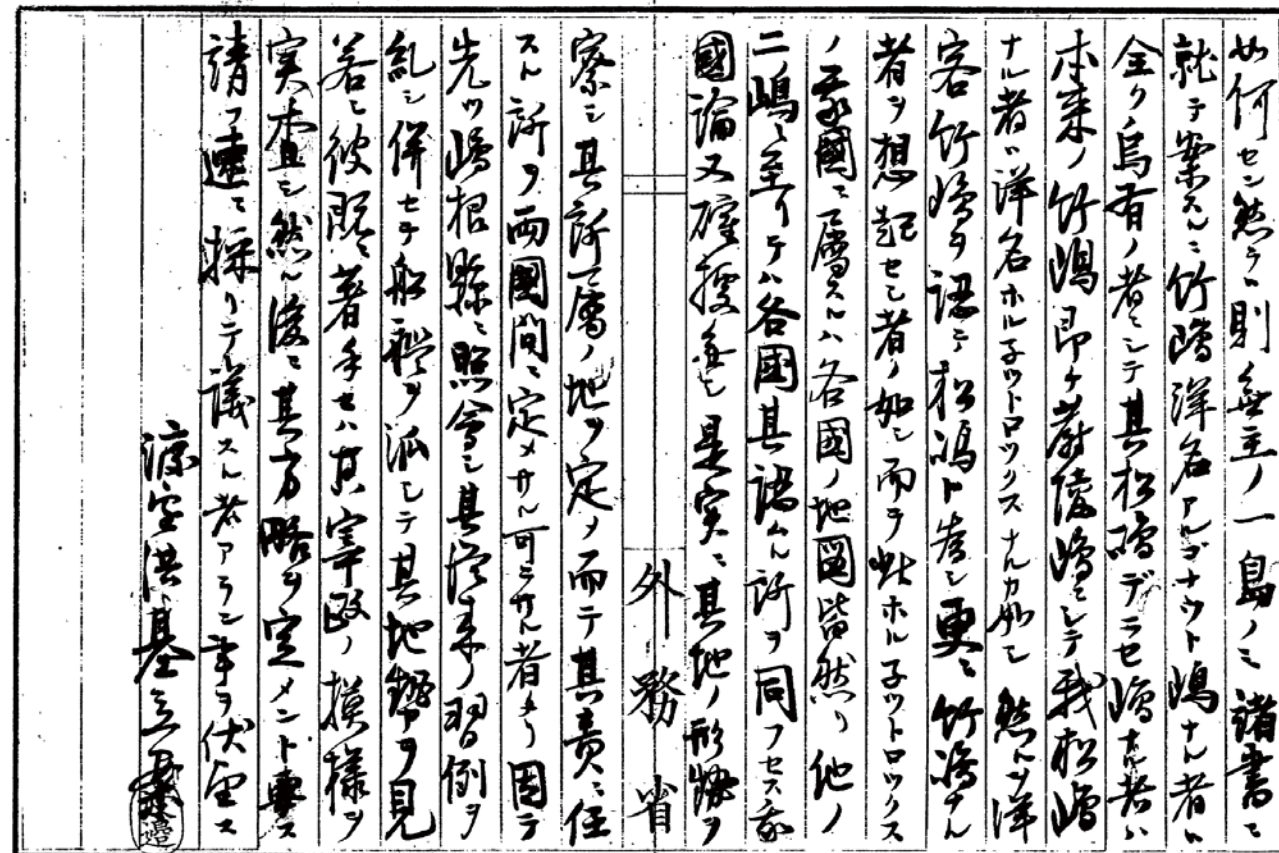 如何セン然ラハ則無主ノ一島ノミ諸書ニ
就テ案スルニ竹嶋洋名アルゴナウト嶋ナル者ハ
全ク烏有ノ者ニシテ其松嶋デラセ嶋ナル者ハ
本来ノ竹嶋即チ蔚陵嶋ニシテ我松嶋
ナル者ハ洋名ホル子ットロックスナルカ如シ然ルヲ洋
客竹嶋ヲ認テ松嶋ト為シ更ニ竹嶋ナル
者ヲ想起セシ者ノ如シ而テ此ホル子ットロックス
ノ我國ニ属スルハ各國ノ地図皆然リ他ノ
二嶋ニ至リテハ各國其認ムル所ヲ同フセス我
國論又確據無シ是実ニ其地ノ形勢ヲ
外務省
察シ其所属ノ地ヲ定メ而テ其責ニ任
スル所ヲ両國間ニ定メサル可ラサル者タリ因テ
先ツ嶋根縣ニ照會シ其従来ノ習例ヲ
糺シ併セテ船艦ヲ派シテ其地勢ヲ見
若シ彼既ニ著手セハ其宰政ノ模様ヲ
実査シ然ル後ニ其方略ヲ定メント要ス
請フ速ニ採リテ議スル者アラン事ヲ伏望ス
渡邉洪基立案
邉